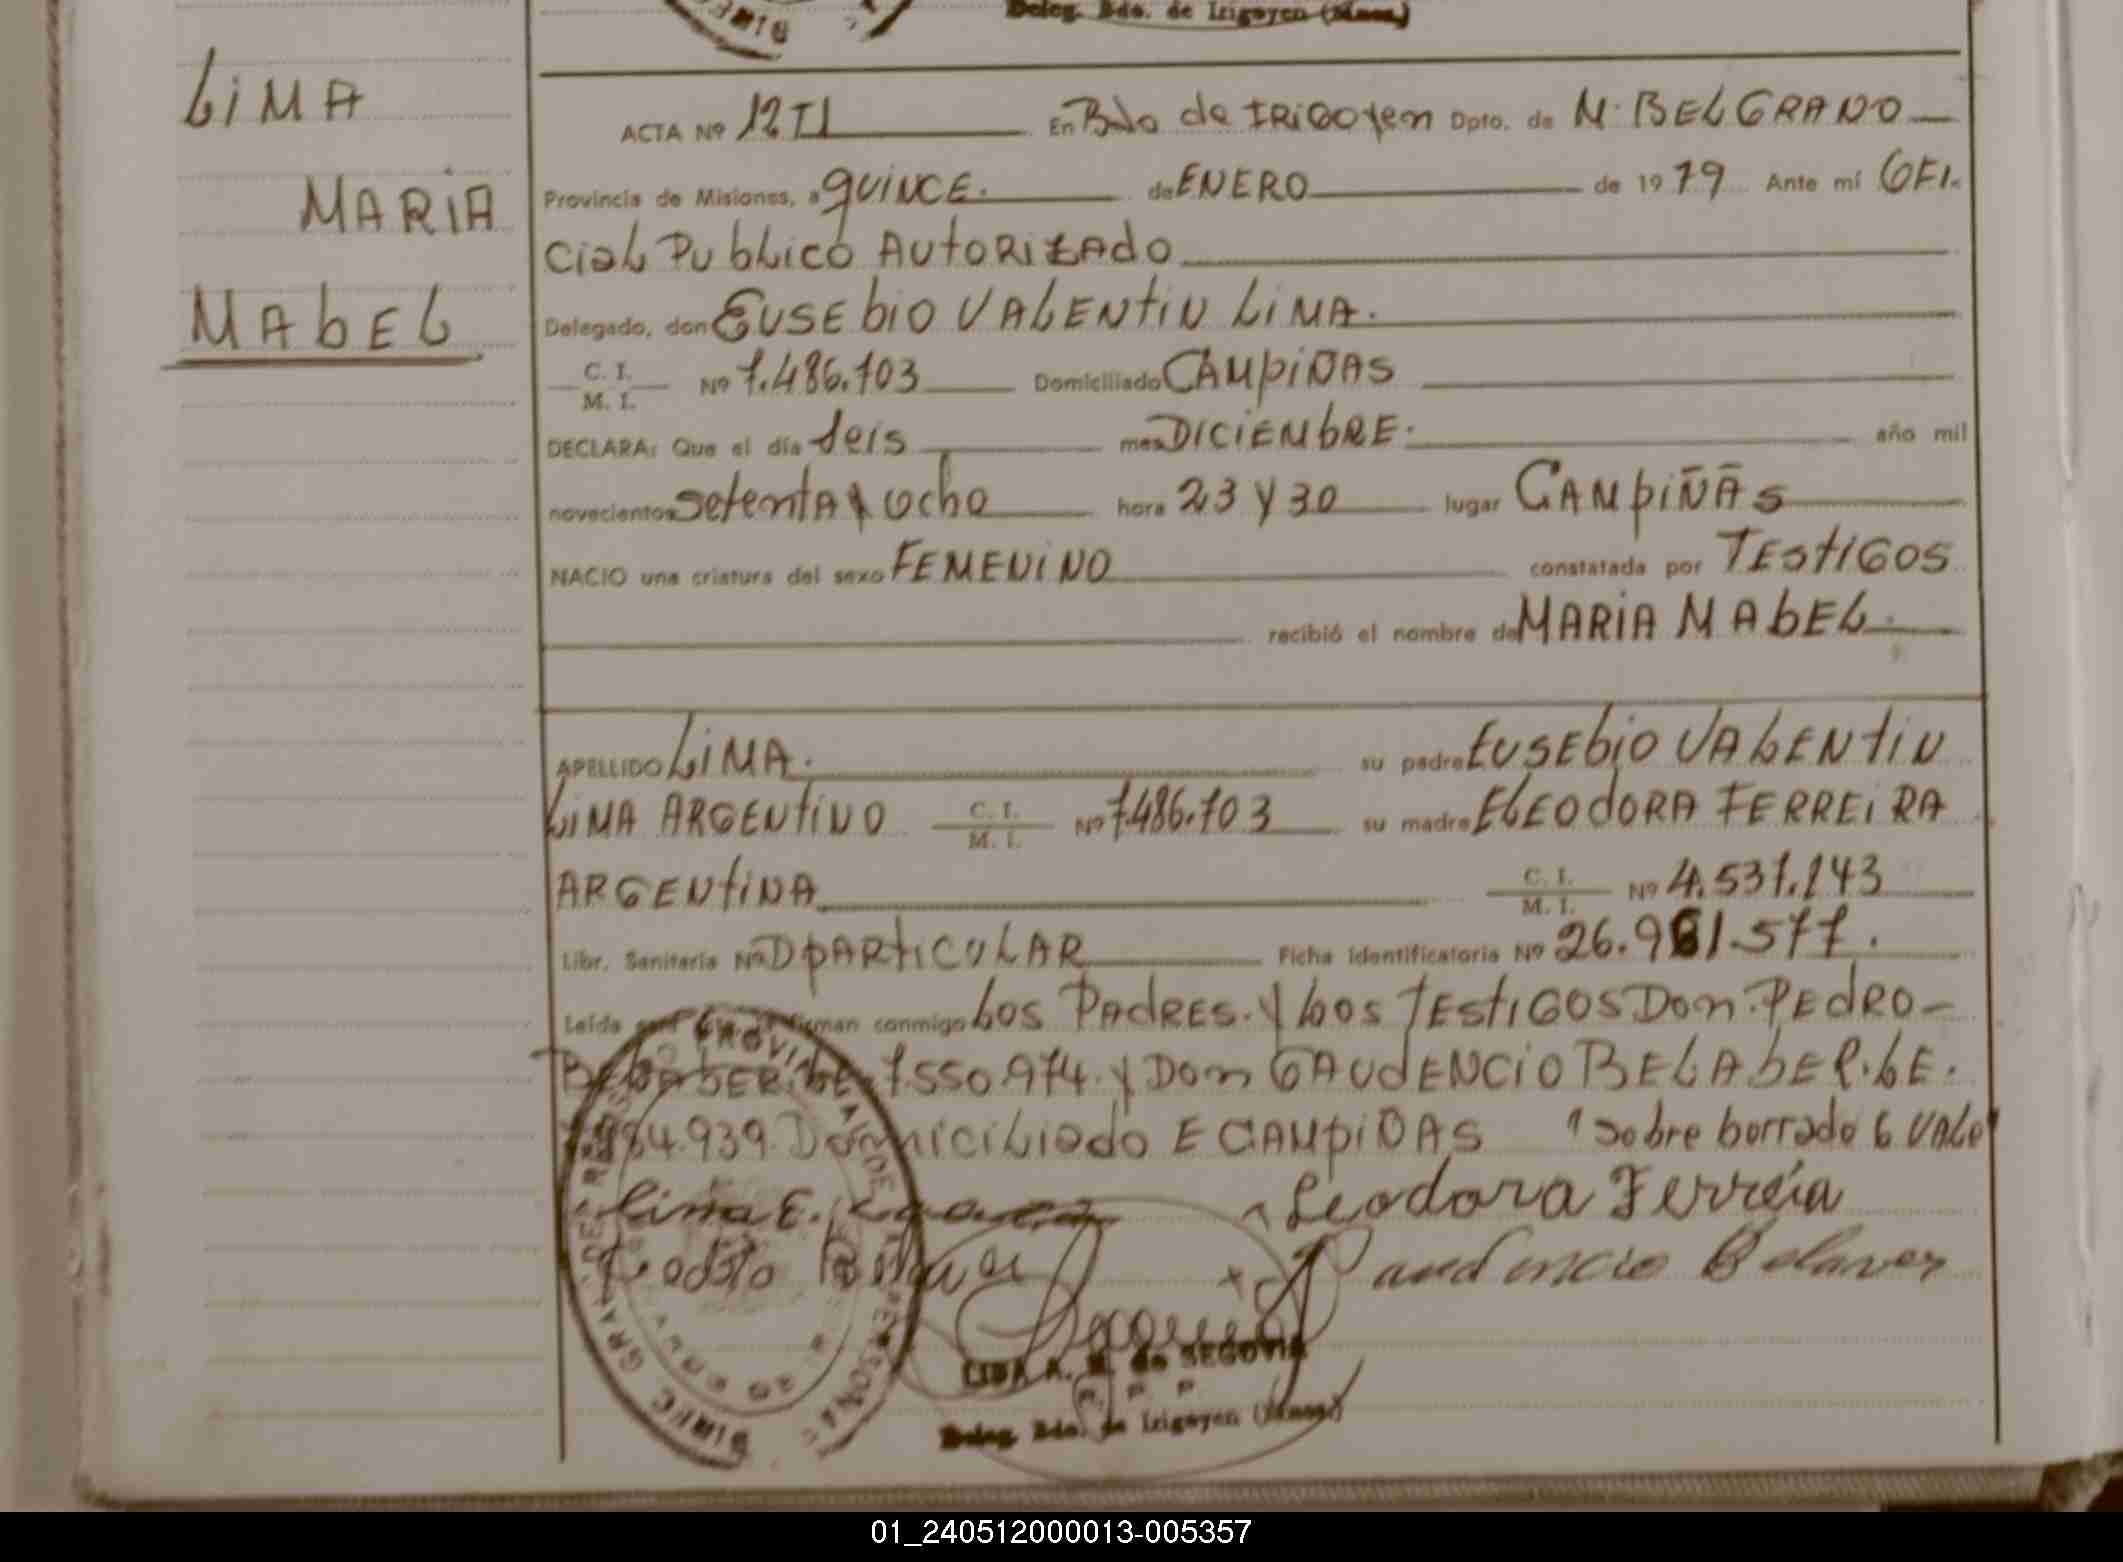 Deleg. Bdo. de Irigoyen (Mnes.)
LIMA
MARIA
MAbEL
ACTA Nº 12TI En Bdo de IRIGOYen Dpto. de M. BELGRANO
Provincia de Misiones, a QUINCE. de ENERO de 1979 Ante mí OFI.
CiaL PubLico AUtORIZAdo
Delegado, don EUSEbiO VALENtIN LiMA.
C. I.
M. I. Nº 7.486.703 Domiciliado CAMpiÑAS
DECLARA: Que el día seis mes DICIEMbRE. año mil
novecientos SetentA y ocho hora 23 Y 30 lugar CAMpiÑAS
NACIO una criatura del sexo FEMENINO constatada por TEStIGOS
recibió el nombre de MARIA MAbEL.
APELLIDO LiMA. su padre EUSEbiO VALENtIN
LiMA ARGENtINO C. I. M. I. Nº 7.486.703 su madre ELEOdORA FERREiRA
ARGENtINA C. I. M. I. Nº 4.537.143
Libr. Sanitaria Nº D pARtiCULAR Ficha identificatoria Nº 26.961.577.
Leída firman conmigo LoS PAdRES. Y LoS TEStIGOS Don. PEdRO-
BELAbER. LE. 7550.974. Y Don GAUdENCiO BELAbER. LE.
84.939. DomiciLiado E CAMpiÑAS 1 Sobre borrado 6 VALe
Lima E.
Leodora Ferreia
Gaudencio Belaver
LIDA A. M. de SEGOVIA
Deleg. Bdo. de Irigoyen (Mnes.)
01_240512000013-005357